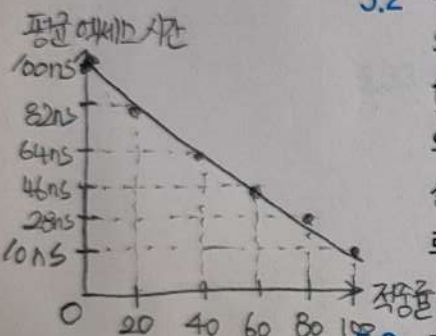 5.2
평균 액세스 시간
100ns
82ns
64ns
46ns
28ns
10ns
0 20 40 60 80 100 적중률